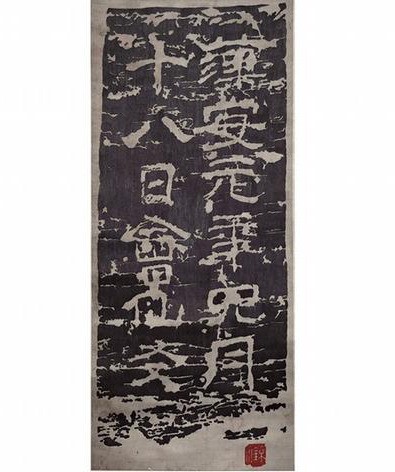 漢安元年四月
十八日會仙友